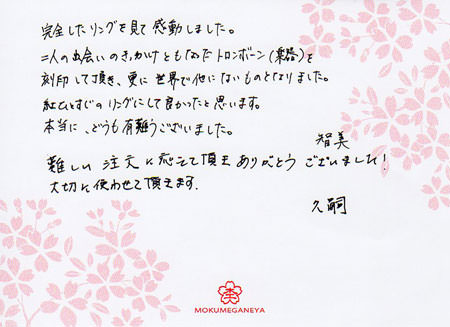 完全したリングを見て感動しました。
二人の出会いのきっかけともなったトロンボーン(楽器)を
刻印して頂き、更に世界で他にないものとなりました。
紅ひとすじのリングにして良かったと思います。
本当に、どうも有難うございました。
智美
難しい注文に応えて頂きありがとうございました!
大切に使わせて頂きます.
久嗣
MOKUMEGANEYA